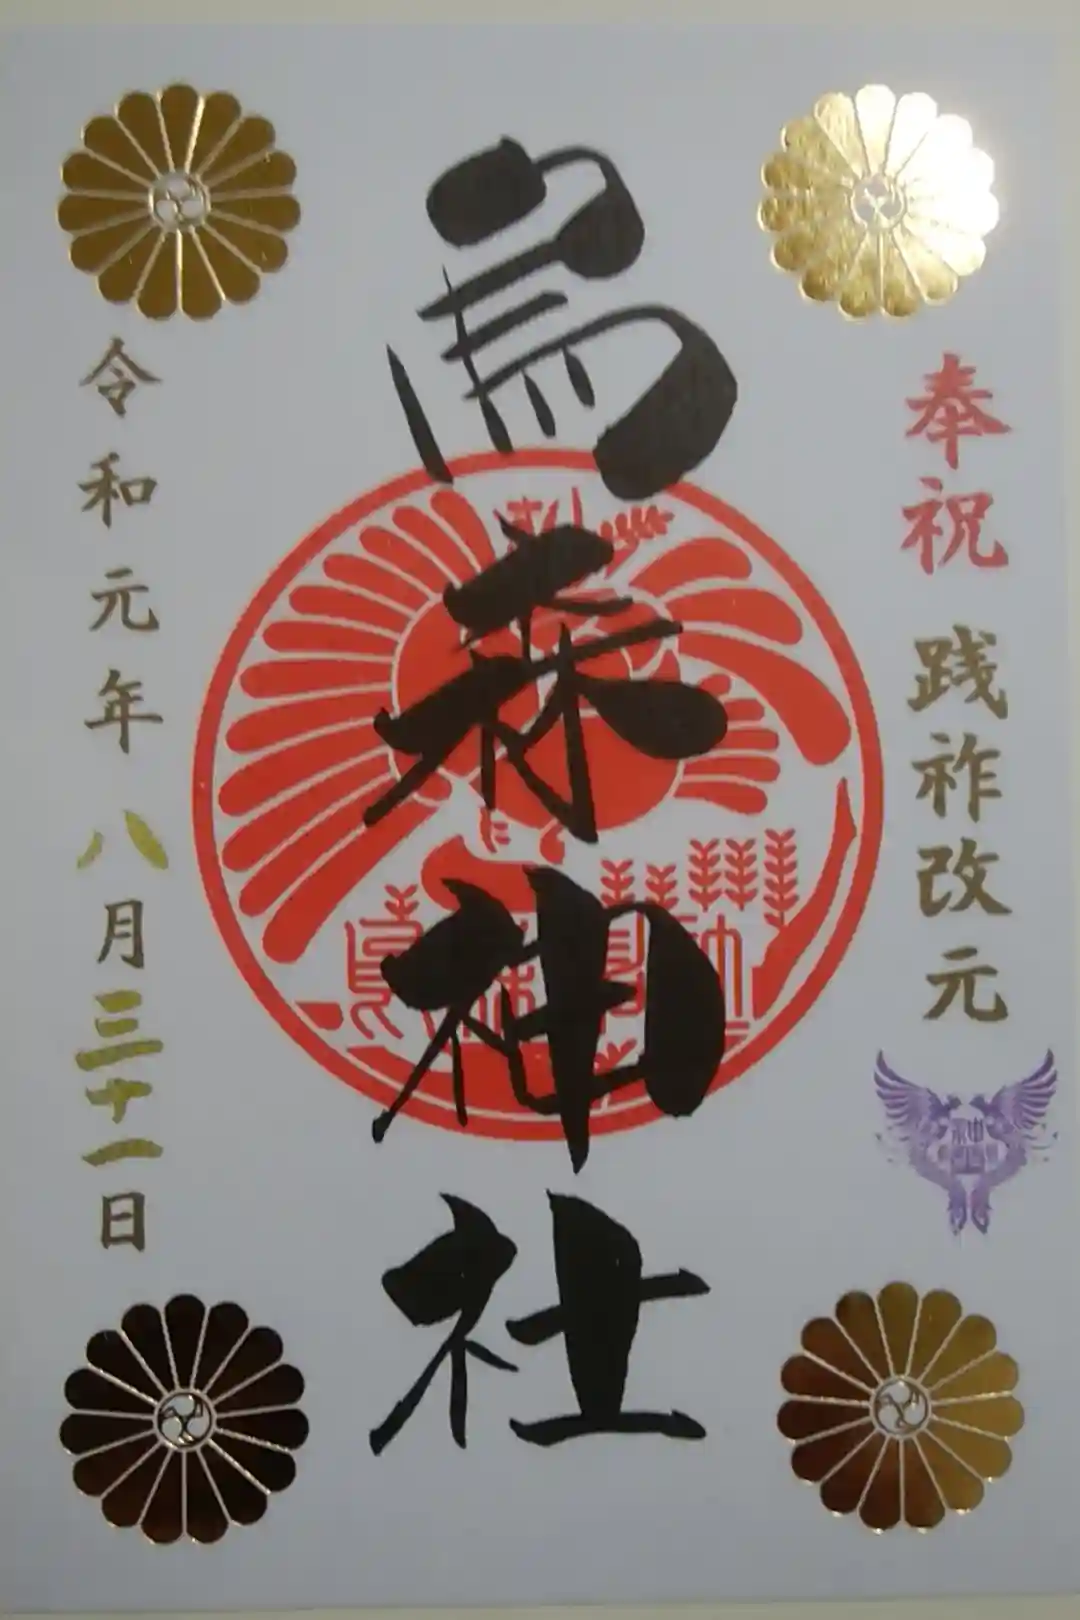 奉祝 践祚改元
烏森神社
令和元年八月三十一日